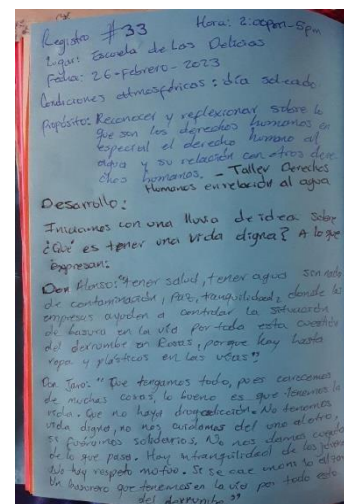 Registro #33 Hora: 2:00pm-5pm
Lugar: Escuela de Las Delicias
Fecha: 26-Febrero-2023
Condiciones atmosféricas: día soleado
Propósito: Reconocer y reflexionar sobre lo
que son los derechos humanos en
especial el derecho humano al
agua y su relación con otros dere
chos humanos. - Taller Derechos
Humanos en relación al agua
Desarrollo:
Iniciamos con una lluvia de idea sobre
¿Qué es tener una vida digna? A lo que
Expresan:
Don Alonso: "tener salud, tener agua
de contaminación, Paz, tranquilidad, donde las
empresas ayuden a controlar la situación
de basura en la vía por toda esta cuestión
del derrumbe en Rosas, porque hay hasta
ropa y plásticos en las vías"
Don Jairo: "Que tengamos todo, pues carecemos
de muchas cosas, lo bueno es que tenemos la
vida. Que no haya drogadicción. No tenemos
vida digna, no nos cuidamos del uno al otro,
si fuéramos solidarios. No nos damos cuenta
de lo que pasa. Hay intranquilidad de los jóvenes
No hay respeto mutuo. Si se cae uno lo alzan
Un basurero que tenemos en la vía por todo esto
del derrumbe"